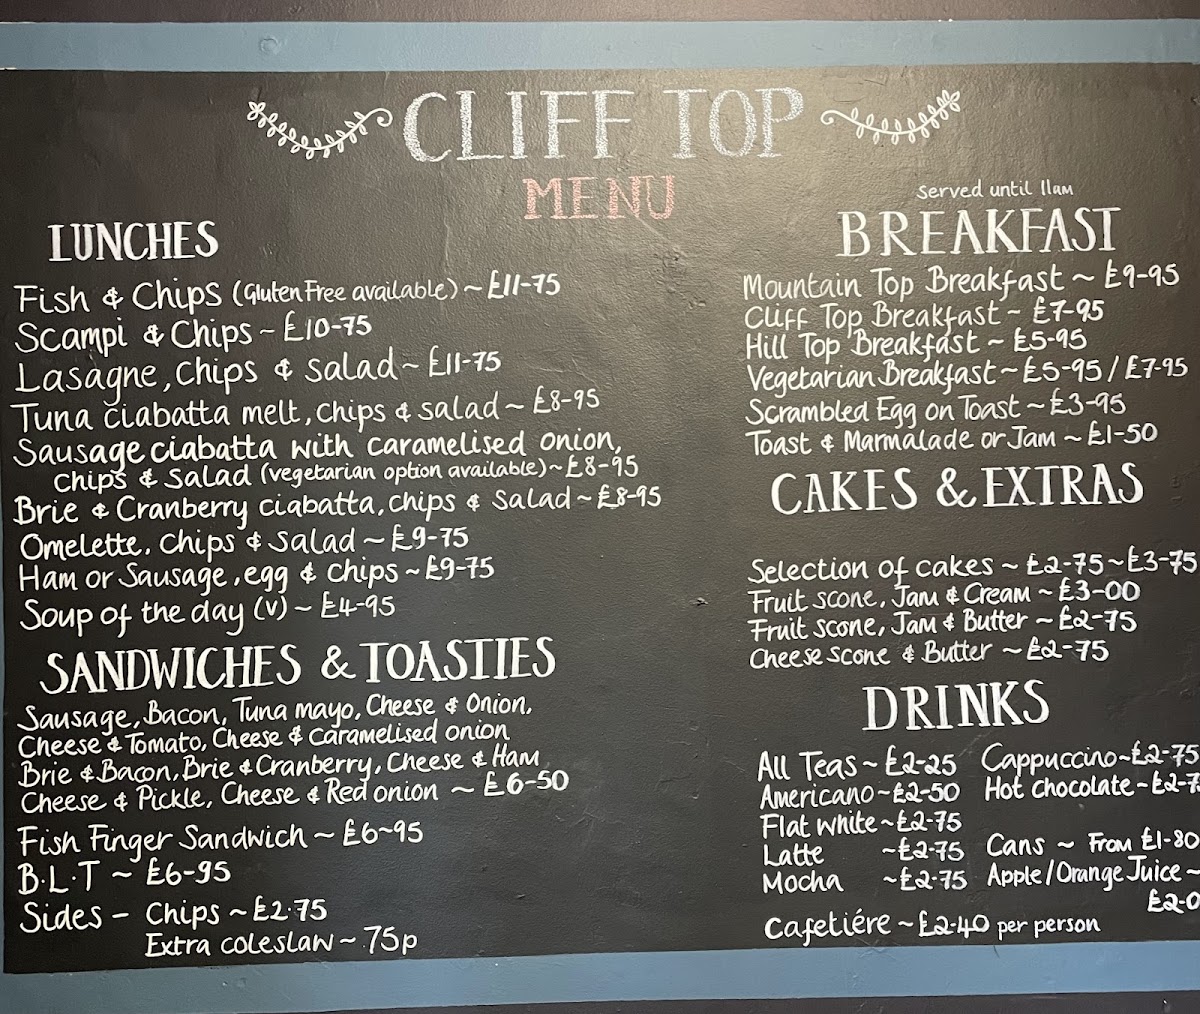 CLIFF TOP
MENU
LUNCHES
Fish & Chips (Gluten Free available) ~ £11-75
Scampi & Chips ~ £10-75
Lasagne, Chips & Salad ~ £11-75
Tuna ciabatta melt, chips & salad ~ £8-95
Sausage ciabatta with caramelised onion,
chips & salad (vegetarian option available) ~ £8-95
Brie & Cranberry ciabatta, chips & salad ~ £8-95
Omelette, chips & salad ~ £9-75
Ham or Sausage, egg & chips ~ £9-75
Soup of the day (v) ~ £4-95
SANDWICHES & TOASTIES
Sausage, Bacon, Tuna mayo, Cheese & Onion,
Cheese & Tomato, Cheese & caramelised onion
Brie & Bacon, Brie & Cranberry, Cheese & Ham
Cheese & Pickle, Cheese & Red onion ~ £6-50
Fish Finger Sandwich ~ £6~95
B.L.T ~ £6-95
Sides - Chips ~ £2.75
Extra coleslaw ~ 75p
Served until 11am
BREAKFAST
Mountain Top Breakfast ~ £9-95
Cliff Top Breakfast ~ £7-95
Hill Top Breakfast ~ £5-95
Vegetarian Breakfast ~ £5-95 / £7-95
Scrambled Egg on Toast ~ £3-95
Toast & Marmalade or Jam ~ £1-50
CAKES & EXTRAS
Selection of cakes ~ £2-75 ~ £3-75
Fruit scone, Jam & Cream ~ £3-00
Fruit scone, Jam & Butter ~ £2-75
Cheese scone & Butter ~ £2-75
DRINKS
All Teas ~ £2-25
Americano ~ £2-50
Flat white ~ £2-75
Latte ~ £2-75
Mocha ~ £2-75
Cafetiére ~ £2-40 per person
Cappuccino ~ £2-75
Hot chocolate ~ £2-7
Cans ~ From £1-80
Apple / Orange Juice ~
£2-0